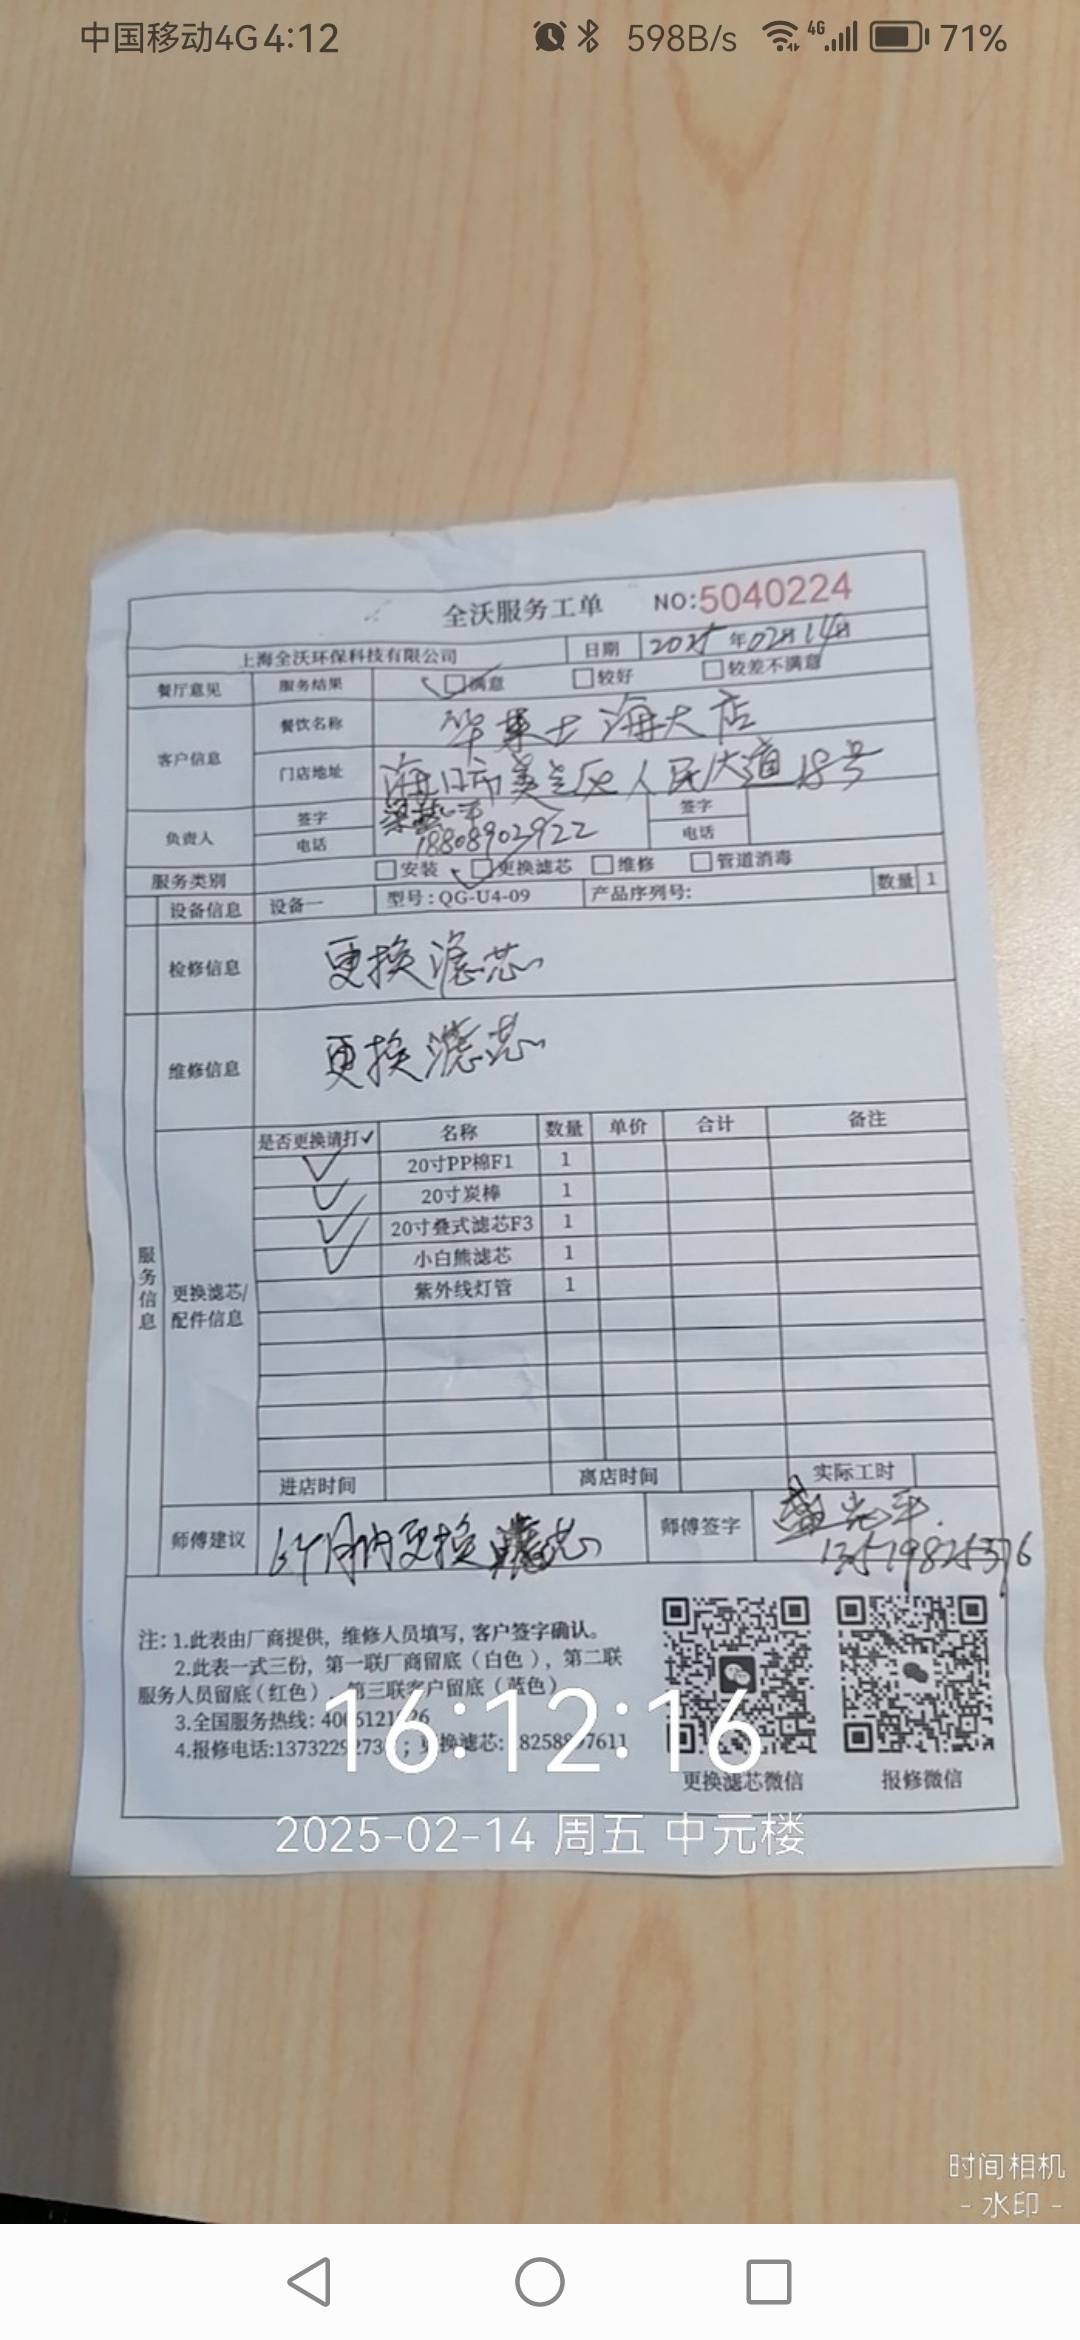 中国移动4G 4:12 598B/s 4G 71%
全沃服务工单 NO:5040224
上海全沃环保科技有限公司 日期 2025年02月14日
餐厅意见 服务结果 满意 较好 较差不满意
客户信息 餐饮名称 华莱士海大店
门店地址 海口市美兰区人民大道18号
负责人 签字 签字
电话 18808902922 电话
服务类别 安装 更换滤芯 维修 管道消毒
设备信息 设备一 型号:QG-U4-09 产品序列号: 数量 1
检修信息 更换滤芯
维修信息 更换滤芯
服务信息
更换滤芯/配件信息
是否更换请打✓ 名称 数量 单价 合计 备注
✓ 20寸PP棉F1 1
✓ 20寸炭棒 1
✓ 20寸叠式滤芯F3 1
✓ 小白熊滤芯 1
紫外线灯管 1
进店时间 离店时间 实际工时
师傅建议 6个月内更换滤芯 师傅签字 光平
13519825376
注:1.此表由厂商提供,维修人员填写,客户签字确认。
2.此表一式三份,第一联厂商留底(白色),第二联
服务人员留底(红色),第三联客户留底(蓝色)
3.全国服务热线:
4.报修电话: ;更换滤芯:
更换滤芯微信 报修微信
16:12:16
2025-02-14 周五 中元楼
时间相机
- 水印 -